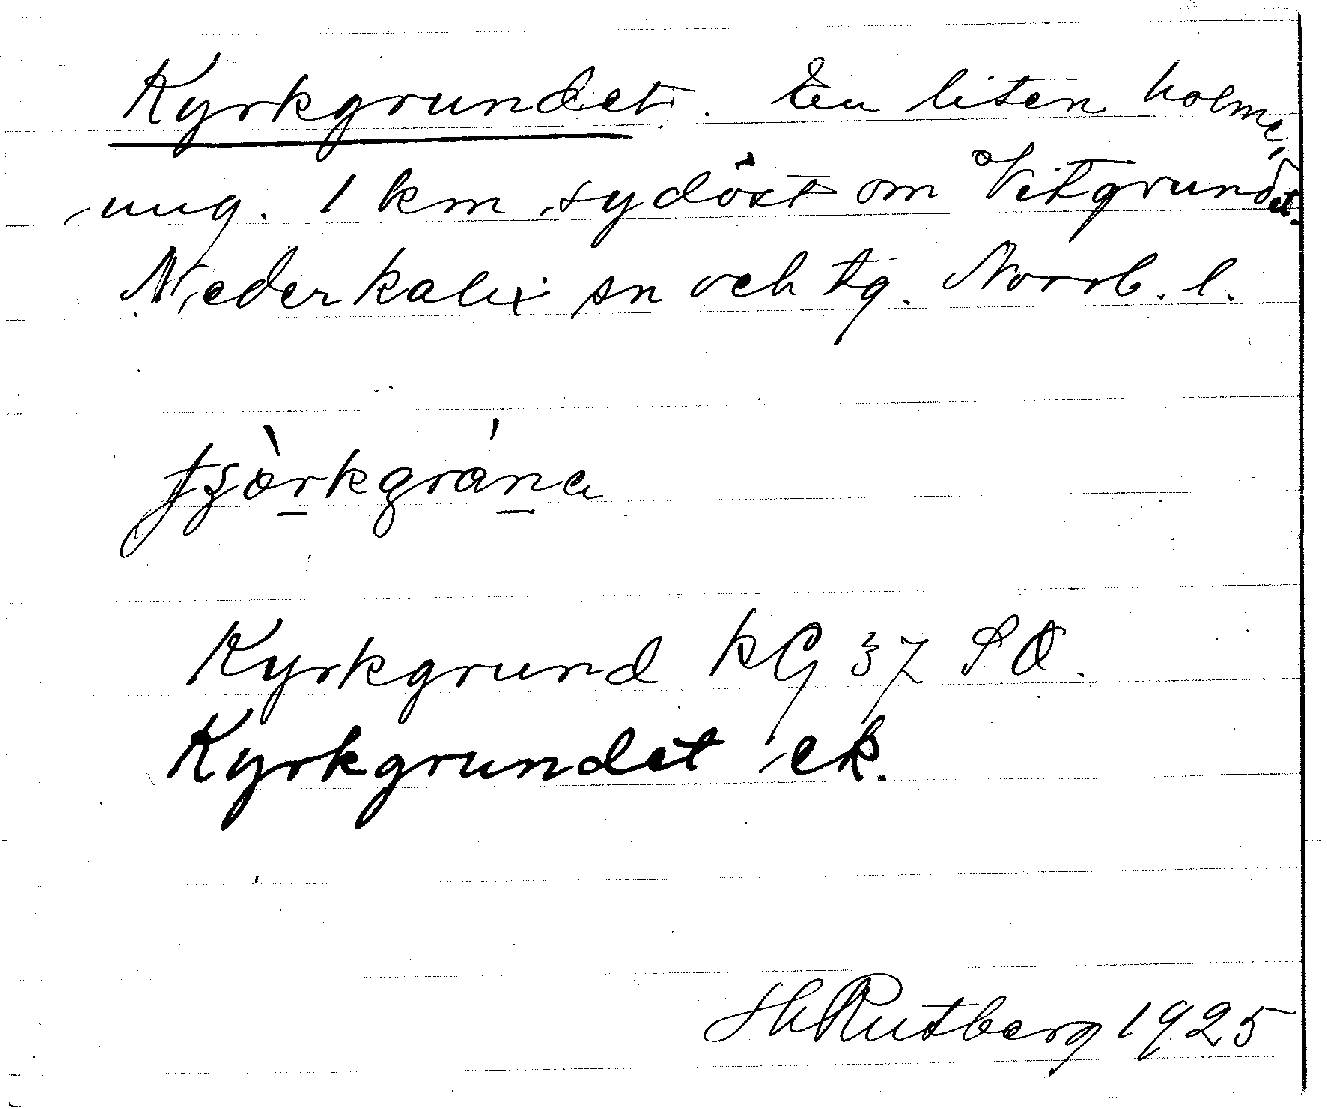 Kyrkgrundet. En liten holme,
ung. 1 km sydöst om °Vitgrundet.
Niederkalix sn och tg. Norrb. l.
Kyrkgrund kG 37 SO.
Kyrkgrundet ek.
H Rutberg 1925